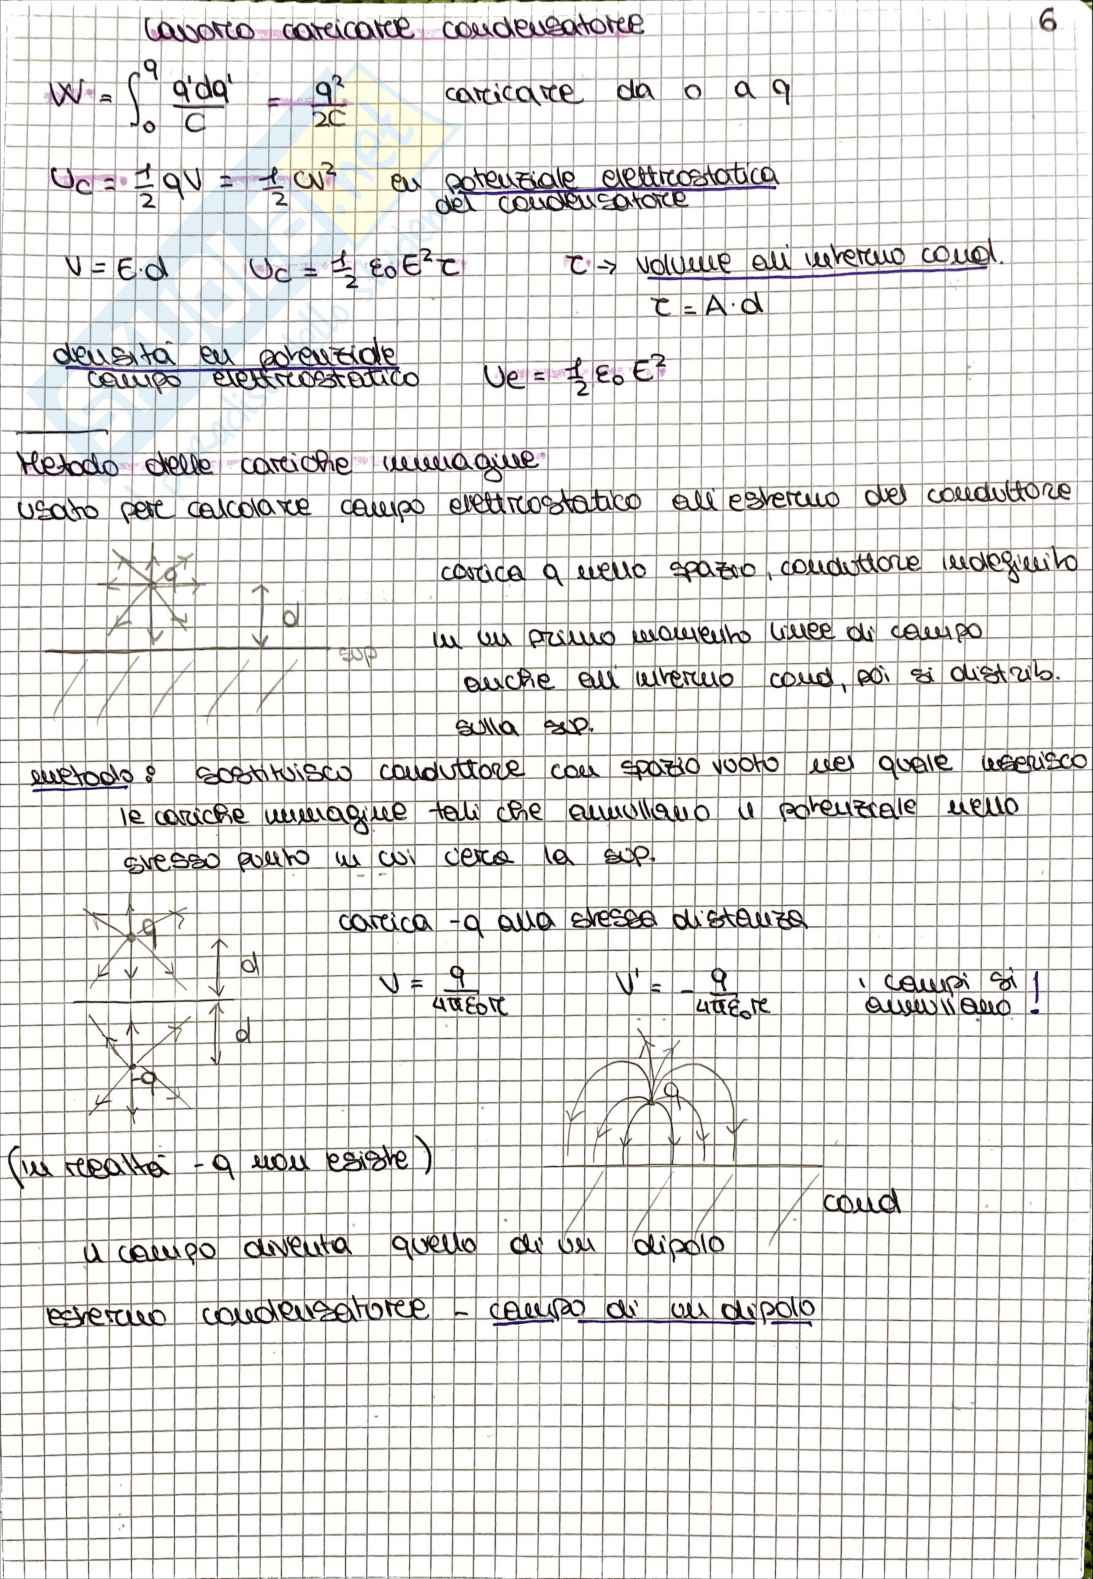 Lavoro caricare condensatore
6
W = ∫₀^q q'dq'/C = q²/2C caricare da 0 a q
Uc = 1/2 qV = 1/2 CV² en potenziale elettrostatica
del condensatore
V = E·d Uc = 1/2 ε₀E²τ τ → volume all'interno cond.
τ = A·d
densità en potenziale
campo elettrostatico Ue = 1/2 ε₀E²
Metodo delle cariche immagine
usato per calcolare campo elettrostatico all'esterno del conduttore
carica q nello spazio, conduttore indefinito
q
d
sup
in un primo momento linee di campo
anche all'interno cond, poi si distrib.
sulla sup.
metodo: sostituisco conduttore con spazio vuoto nel quale inserisco
le cariche immagine tali che annullano il potenziale nello
stesso punto in cui c'era la sup.
carica -q alla stessa distanza
q
d
V = q/4πε₀r V' = - q/4πε₀r i campi si
annullano !
d
-q
q
(in realtà -q non esiste)
cond
il campo diventa quello di un dipolo
esterno condensatore - campo di un dipolo